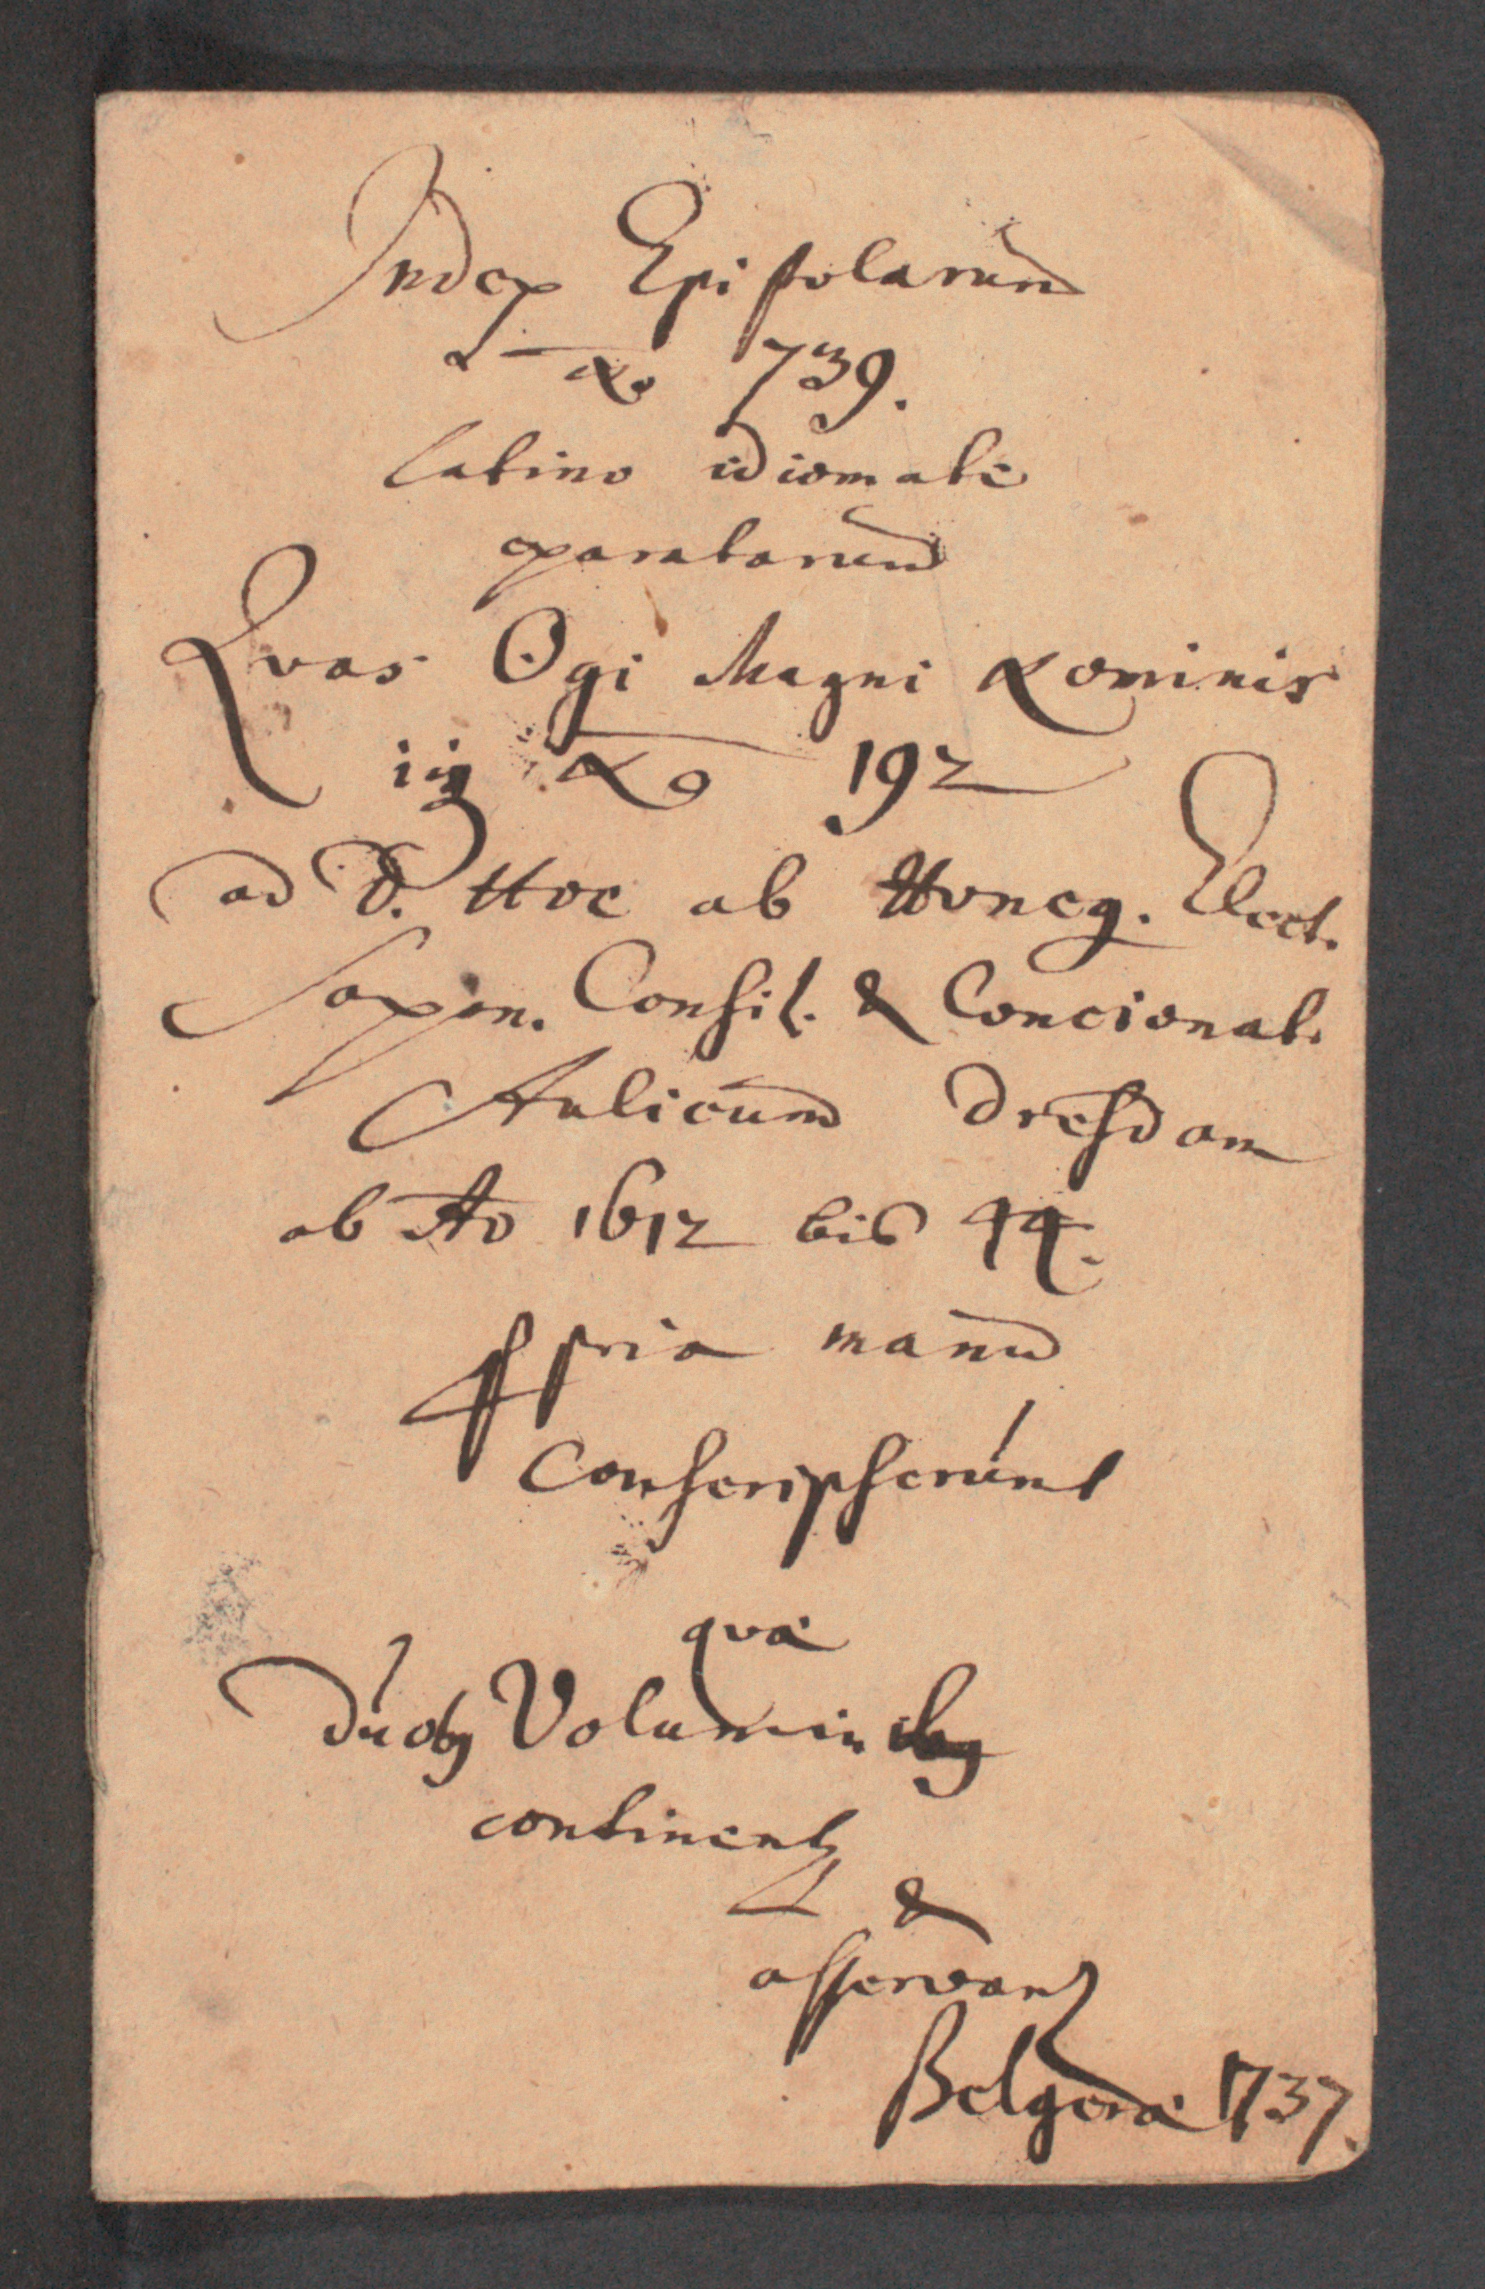 Index Epistolarum
No 739.
latino idiomate
exaratarum
Qvas Ogi Magni Nominis
iiq No 192
ad D. Hoe ab Honeg. Elect.
Saxon. Consil. & Concionat.
Aulicum Dresdam
ab Ao 1612 bis 44.
ppria manu
Conscripserunt
qvae
duobq Voluminibq
continent
&
asservant
Belgerae 1737.